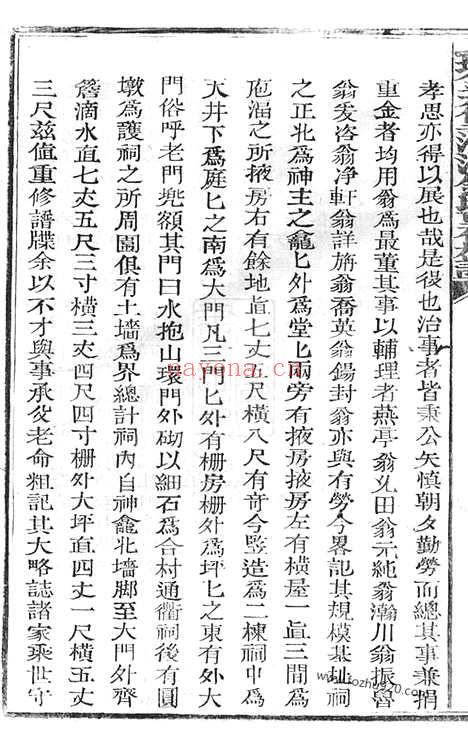 孝思亦得以展也哉是役也治事者皆秉公矢慎朝夕勤勞而總其事兼捐
重金者均用翁為最董其事以輔理者燕亭翁乂田翁元純翁瀚川翁振魯
翁爰咨翁净軒翁詳旃翁喬英翁錫封翁亦與有勞今畧記其規模基址祠
之正北為神主之龕匕外為堂匕兩旁有掖房掖房左有橫屋一直三間為
庖湢之所掖房右有餘地直七丈五尺橫八尺有奇今竪造為二棟祠中為
天井下為庭匕之南為大門凡三門匕外有柵房柵外為坪匕之東有外大
門俗呼老門兠額其門曰水抱山環門外砌以細石為合村通衢祠後有圓
墩為護祠之所周圍俱有土墻為界總計祠內自神龕北墻脚至大門外齊
簷滴水直七丈五尺三寸橫三丈四尺四寸柵外大坪直四丈一尺橫五丈
三尺茲值重修譜牒余以不才與事承父老命粗記其大略誌諸家乘世守
nayona.cn
www.fozhu920.com